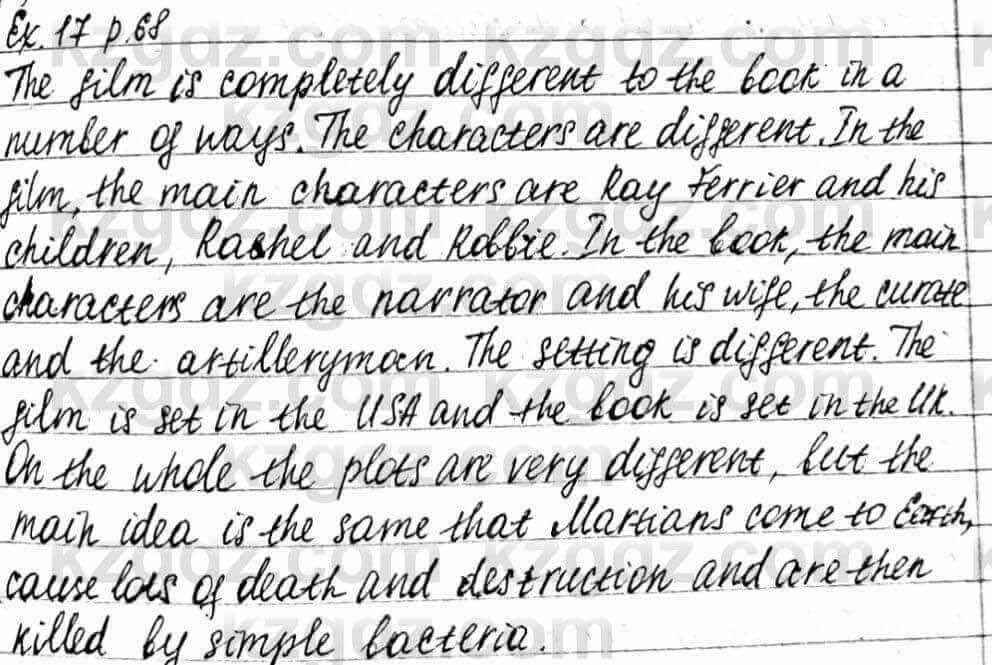 Ex. 17 p.68
The film is completely different to the book in a
number of ways. The characters are different. In the
film, the main characters are Ray Ferrier and his
children, Rashel and Robbie. In the book, the main
characters are the narrator and his wife, the curate
and the artilleryman. The setting is different. The
film is set in the USA and the book is set in the UK.
On the whole the plots are very different, but the
main idea is the same that Martians come to Earth,
cause lots of death and destruction and are then
killed by simple bacteria.